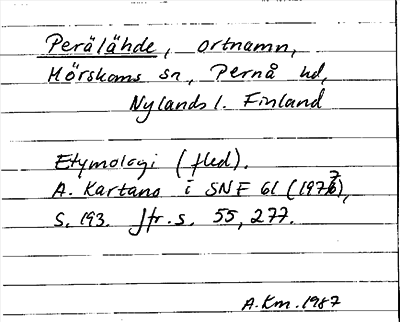 Perälähde, ortnamn,
Mörskoms sn, Pernå hd,
Nylands l. Finland
Etymologi (fled).
A. Kartano i SNF 61 (1977),
s. 193. Jfr. s. 55, 277.
A.Km. 1987